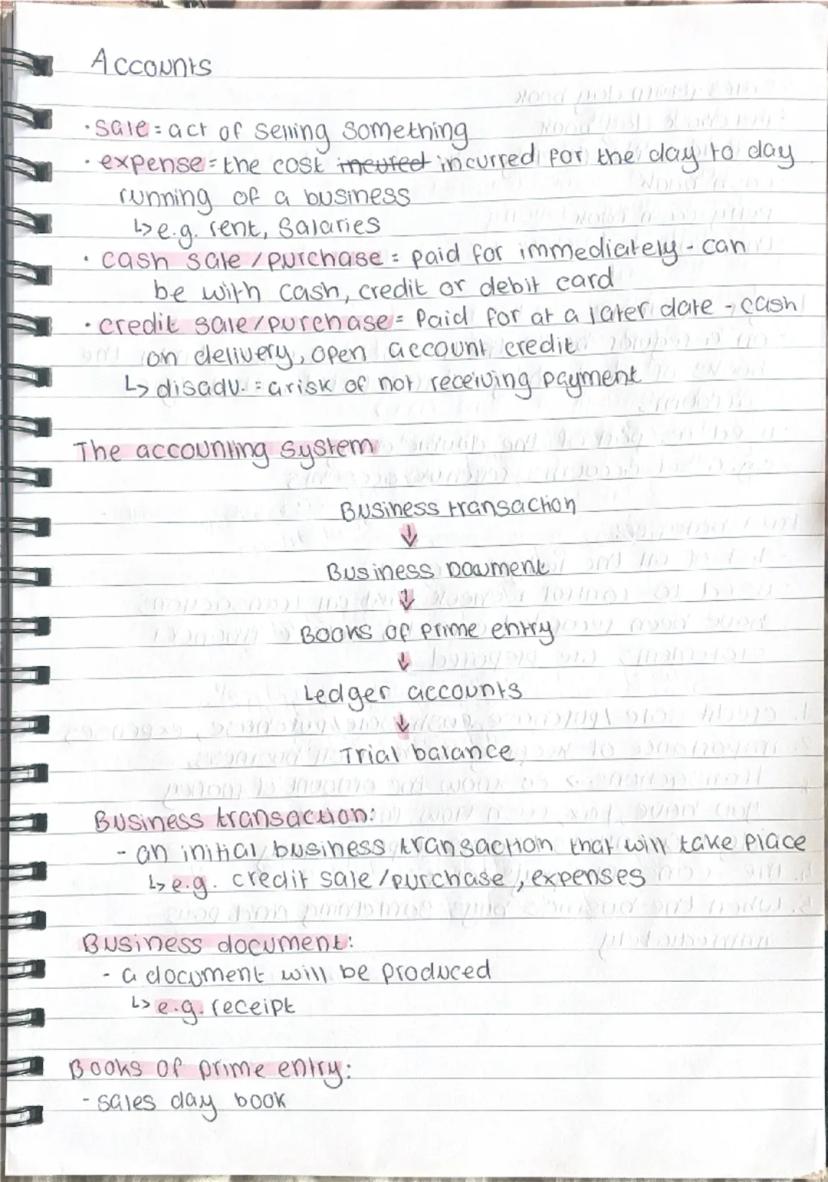 Accounts
· sale = act of selling something
· expense = the cost incured incurred for the day to day
running of a business
↳ e.g. rent, salaries
· cash sale / purchase = paid for immediately - can
be with cash, credit or debit card
· credit sale/purchase = Paid for at a later date - cash
on delivery, open account credit
↳ disadv. = a risk of not receiving payment
The accounting system
Business transaction
↓
Business Document
↓
Books of prime entry
↓
Ledger accounts
↓
Trial balance
Business transaction:
- an initial business transaction that will take place
↳ e.g. credit sale/purchase, expenses
Business document:
- a document will be produced
↳ e.g. receipt
Books of prime entry:
- sales day book